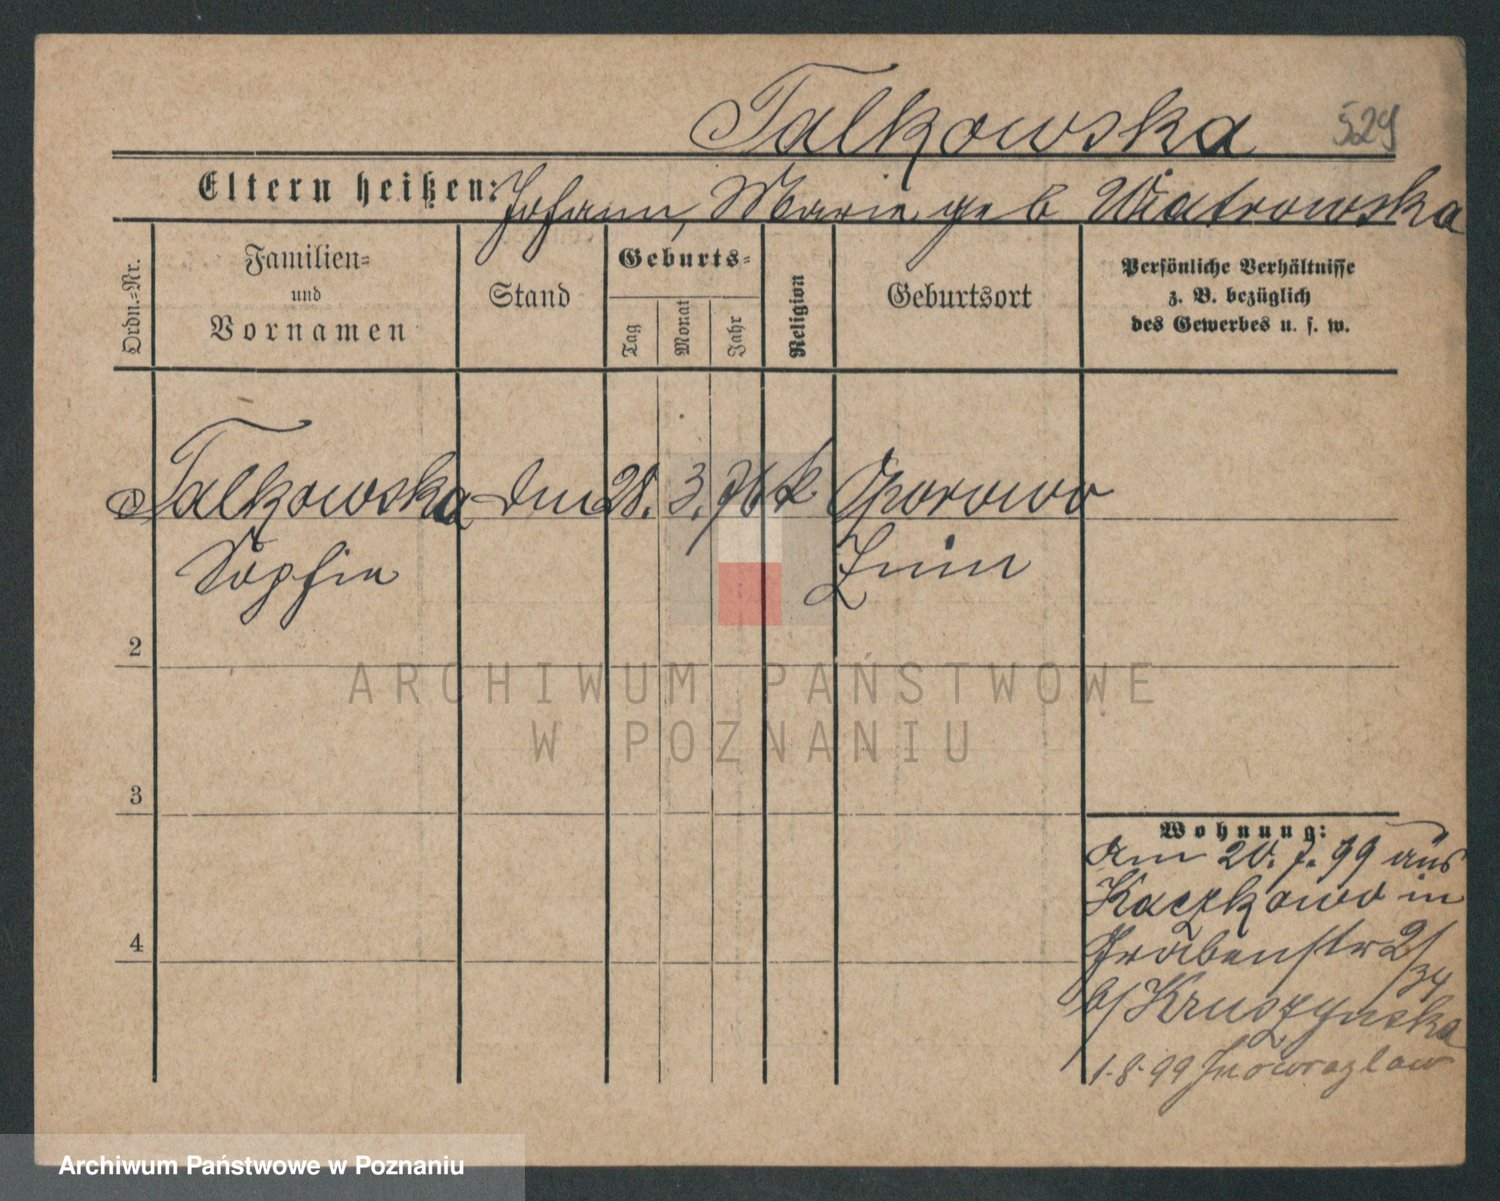 Talkowska 529
Eltern heißen: Johann, Marie geb Wiatrowska
Ordn.=Nr.
Familien=
und
Vornamen
Stand
Geburts=
Tag
Monat
Jahr
Religion
Geburtsort
Persönliche Verhältnisse
z. B. bezüglich
des Gewerbes u. s. w.
Talkowska 28. 3. 76 k
Sophie Znin
2
3
4
Wohnung:
am 20. 7. 99 aus
Kaczkowo in
Grabenstr 2/
34
b/ Kruszynska
1.8.99 Inowrazlaw
ARCHIWUM PAŃSTWOWE
W POZNANIU
Archiwum Państwowe w Poznaniu